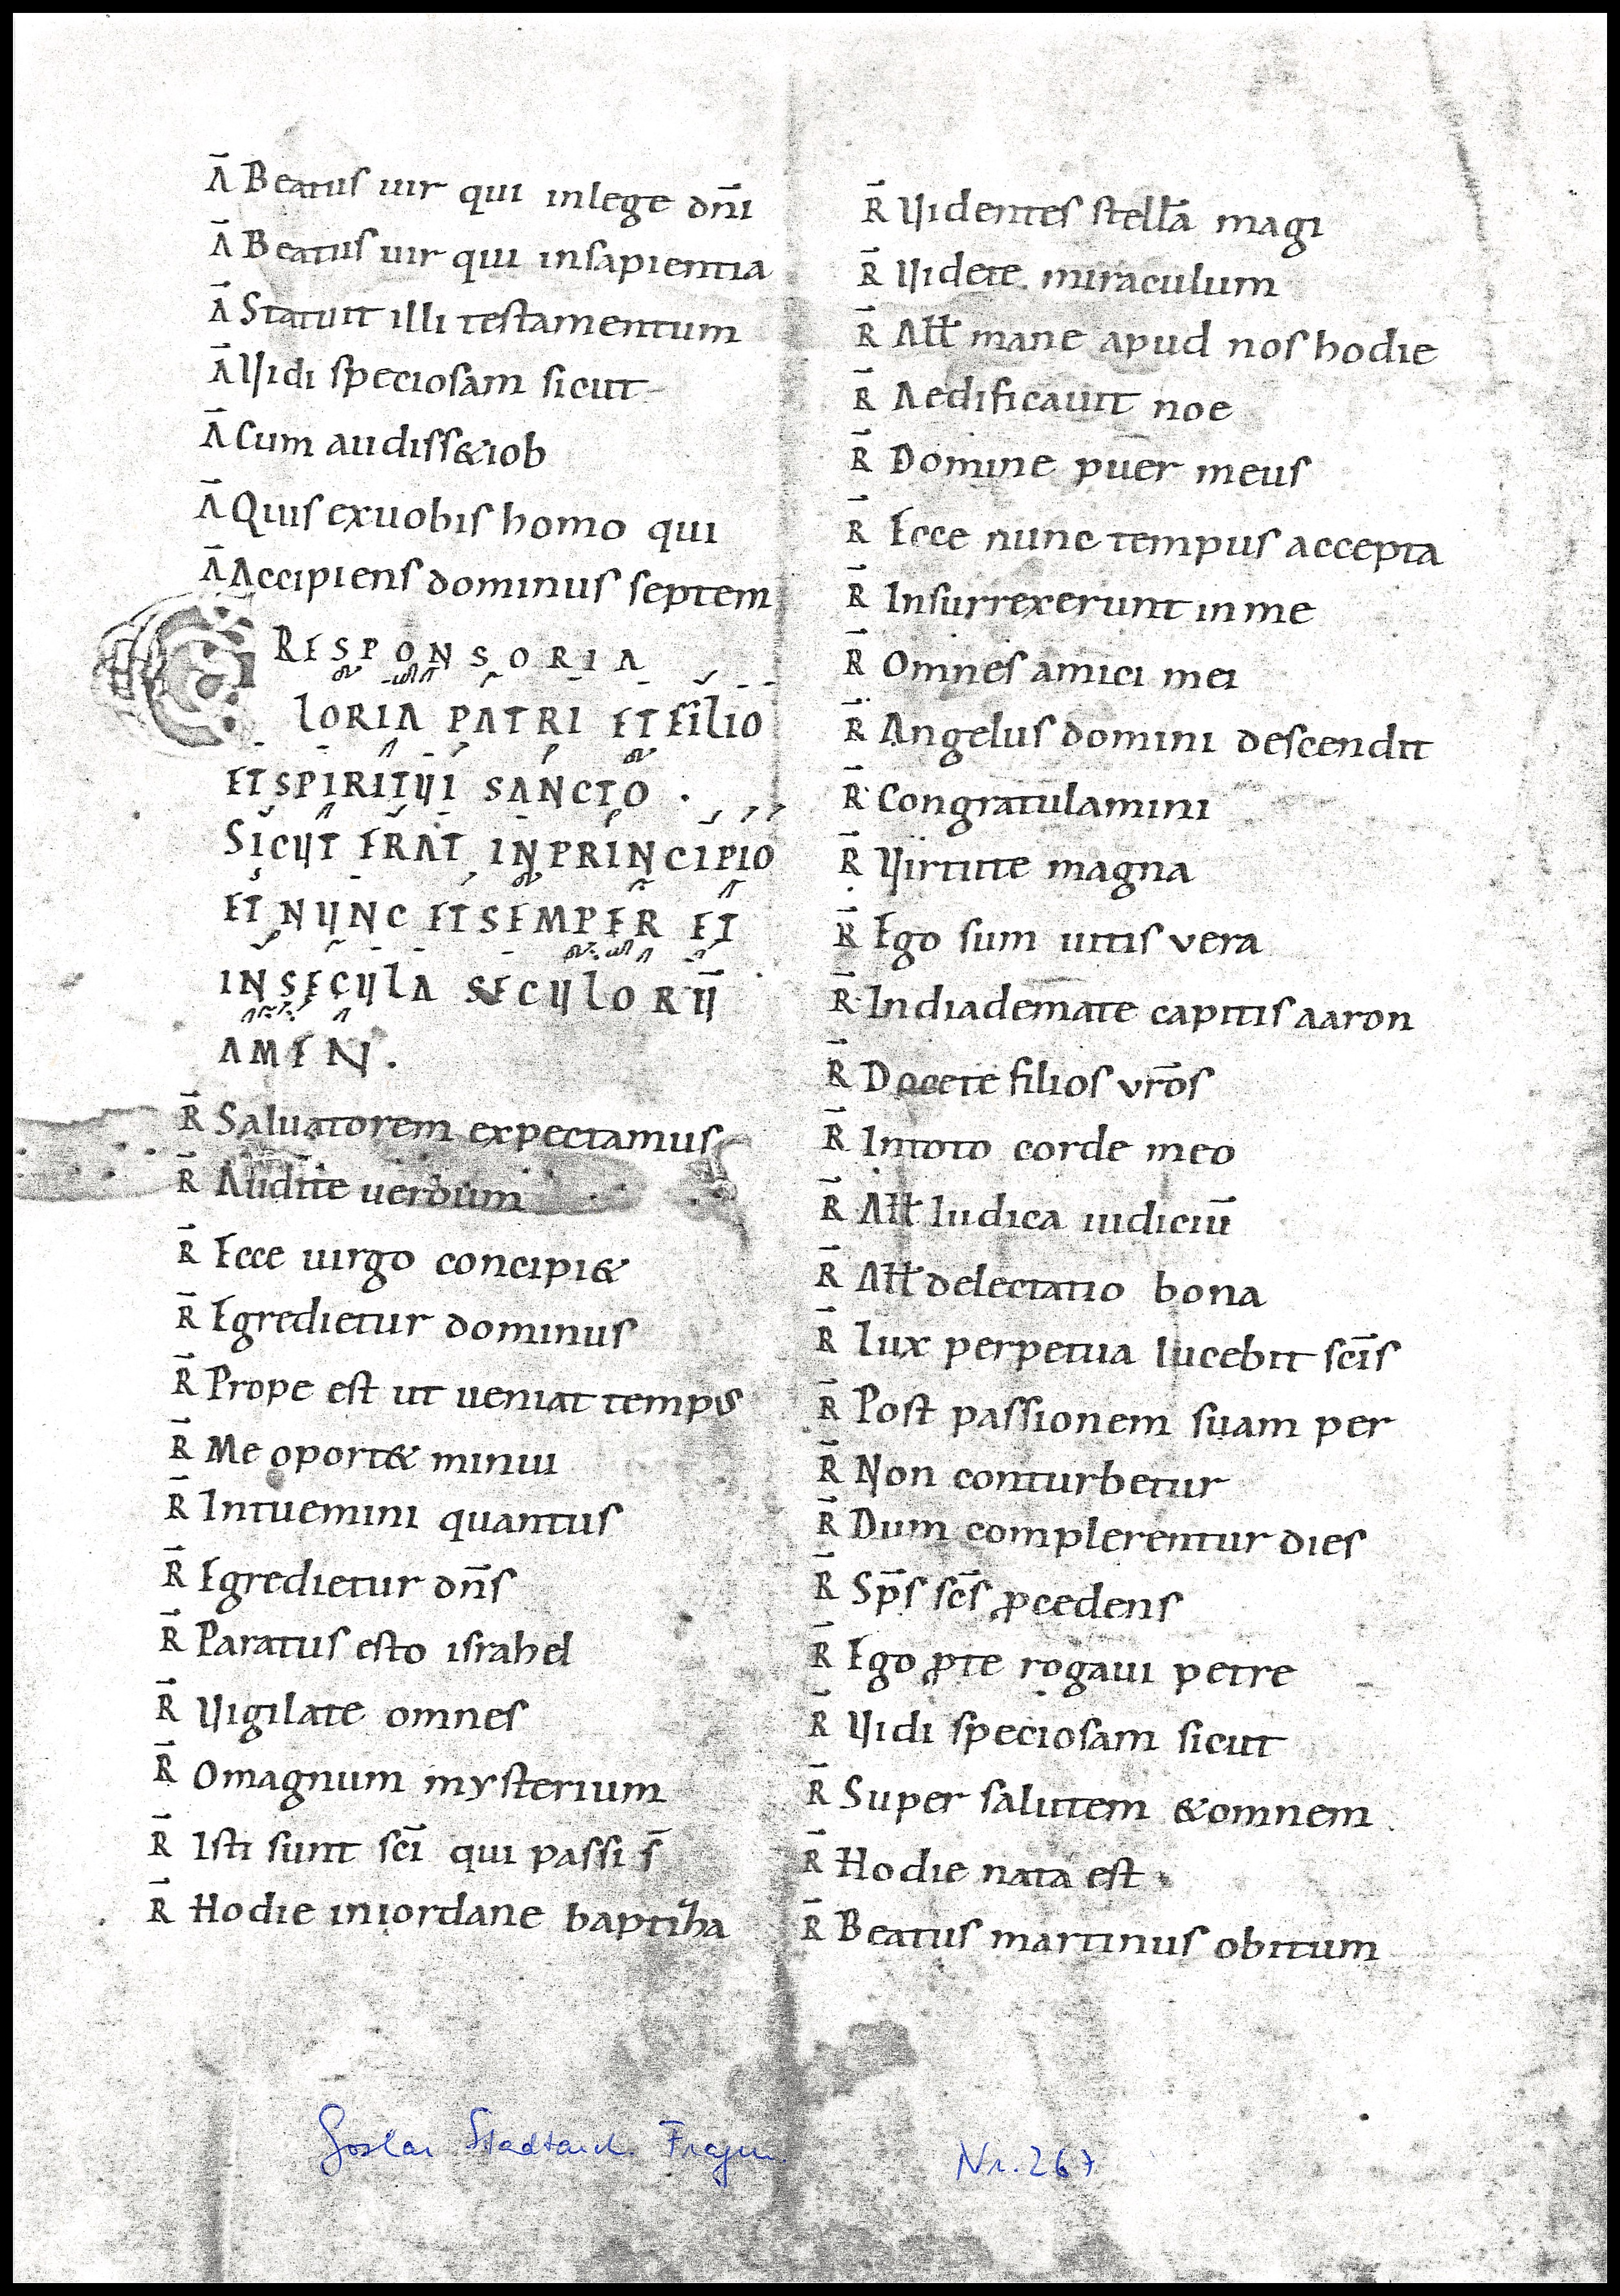 Ā Beatus uir qui inlege dn̄i
Ā Beatus uir qui insapientia
Ā Statuit illi testamentum
Ā Vidi speciosam sicut
Ā Cum audiss&iob
Ā Quis exuobis homo qui
Ā Accipiens dominus septem
RESPONSORIA
GLORIA PATRI ET FILIO
ET SPIRITUI SANCTO .
SICUT ERAT IN PRINCIPIO
ET NUNC ET SEMPER ET
IN SECULA SECULORŪ
AMEN.
R̄ Saluatorem expectamus
R̄ Audite uerbum
R̄ Ecce uirgo concipi&
R̄ Egredietur dominus
R̄ Prope est ut ueniat tempus
R̄ Me oport& minui
R̄ Intuemini quantus
R̄ Egredietur dn̄s
R̄ Paratus esto israhel
R̄ Vigilate omnes
R̄ Omagnum mysterium
R̄ Isti sunt sc̄i qui passi s̄
R̄ Hodie iniordane baptiza
R̄ Videntes stellā magi
R̄ Videte miraculum
R̄ All̄ mane apud nos hodie
R̄ Aedificauit noe
R̄ Domine puer meus
R̄ Ecce nunc tempus accepta
R̄ Insurrexerunt in me
R̄ Omnes amici mei
R̄ Angelus domini descendit
R̄ Congratulamini
R̄ Virtute magna
R̄ Ego sum uitis vera
R̄ Indiademate capitis aaron
R̄ Docete filios vr̄os
R̄ Intoto corde meo
R̄ All̄ Iudica iudiciū
R̄ All̄ delectatio bona
R̄ Lux perpetua lucebit sc̄is
R̄ Post passionem suam per
R̄ Non conturbetur
R̄ Dum complerentur dies
R̄ Sp̄s sc̄s ꝓcedens
R̄ Ego ꝓte rogaui petre
R̄ Vidi speciosam sicut
R̄ Super salutem &omnem
R̄ Hodie nata est
R̄ Beatus martinus obitum
Goslar Stadtarch. Fragm. Nr. 267